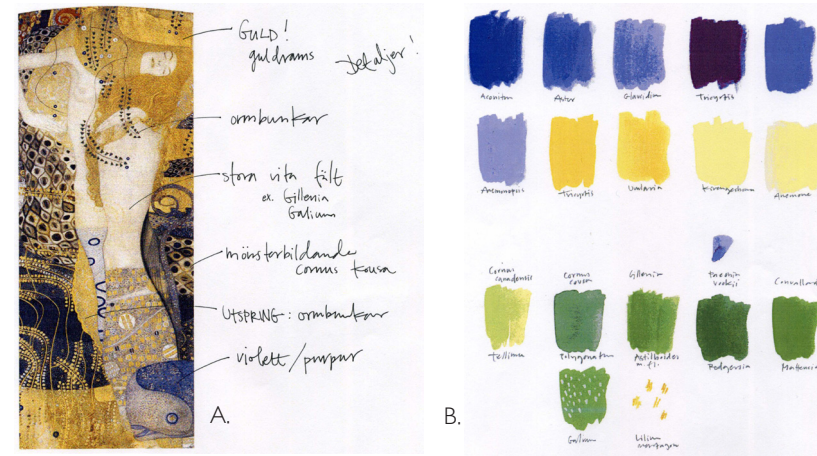 GULD!
guldrams
Detaljer!
ormbunkar
stora vita fält
ex. Gillenia
Galium
mönsterbildande
cornus kousa
UTSPRING: ormbunkar
violett/purpur
A.
Aconitum
Aster
Glaucidium
Tricyrtis
Anemonopsis
Tricyrtis
Uvularia
Kirengeshoma
Anemone
Cornus
canadensis
Cornus
kousa
Gillenia
Convallaria
Tellima
Polygonatum
Astilboides
m. fl.
Rodgersia
Matteuccia
Galium
Lilium
martagon
B.